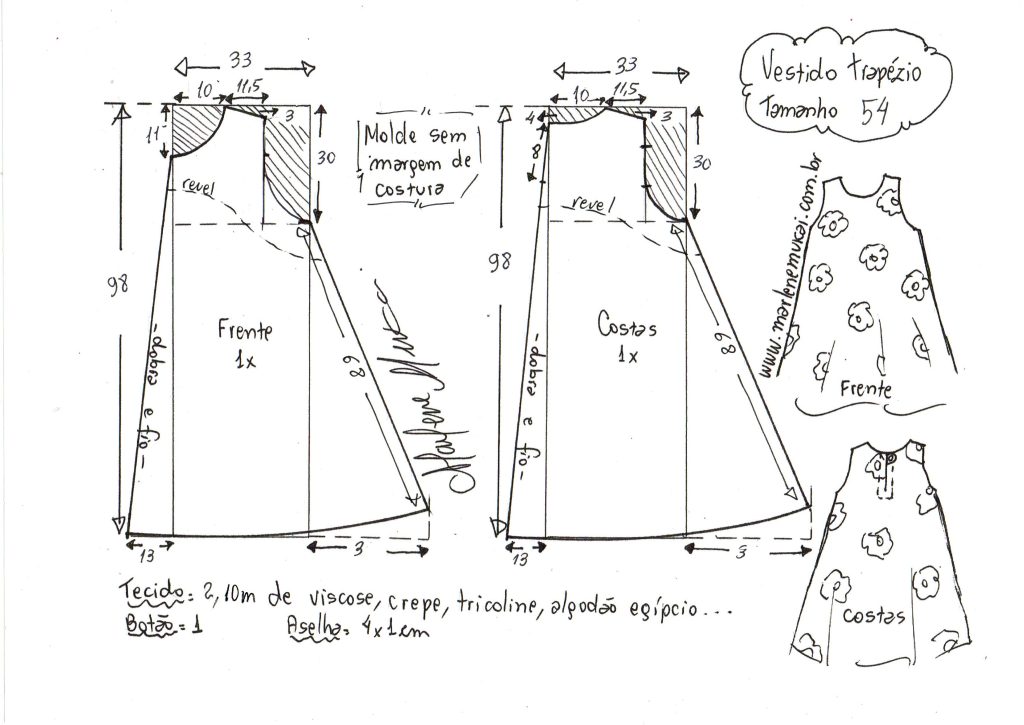 Vestido trapézio
Tamanho 54
33
10
11,5
3
11
30
98
revel
Frente
1x
- dobra e fio -
68
13
3
Molde sem
margem de
costura
Marlene Mukai
33
10
11,5
4
3
8
30
98
revel
Costas
1x
- dobra e fio -
68
13
3
www.marlenemukai.com.br
Frente
costas
Tecido: 2,10m de viscose, crepe, tricoline, algodão egípcio...
Botão = 1
Aselha = 4x1cm